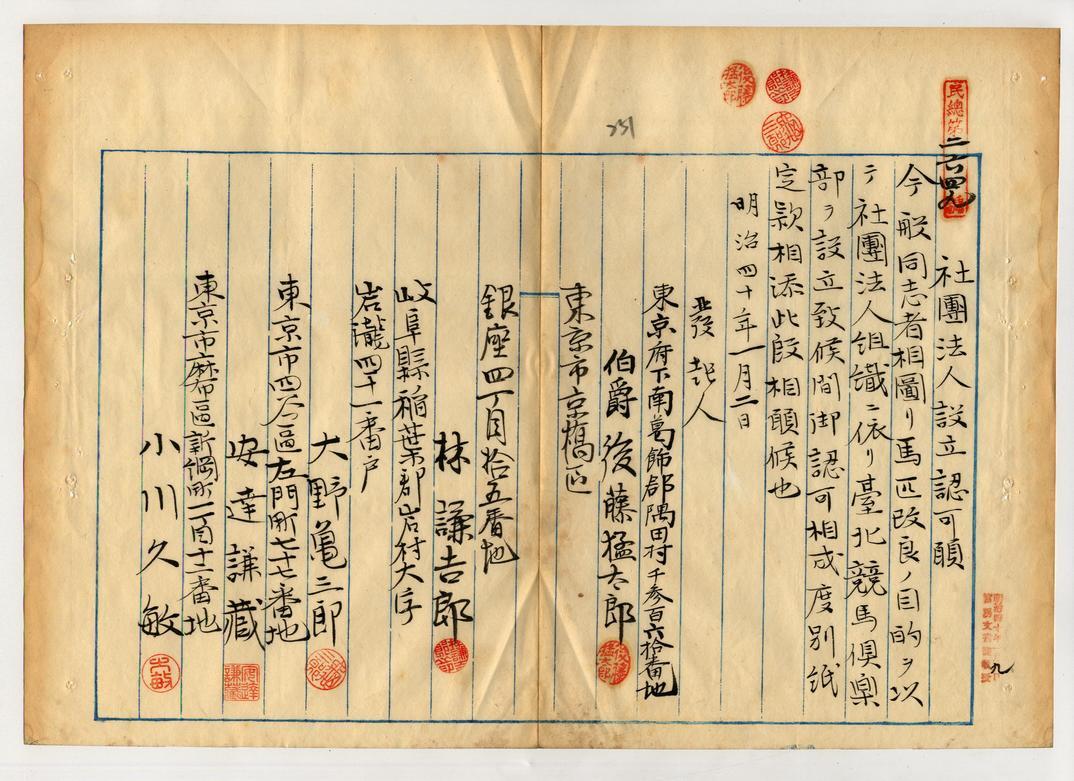 民總第二六四九號
社團法人設立認可願
今般同志者相圖リ馬匹改良ノ目的ヲ以
テ社團法人組織ニ依リ臺北競馬俱樂
部ヲ設立致候間御認可相成度別紙
定款相添此段相願候也
明治四十年一月二日
發起人
東京府下南葛飾郡隅田村千参百六拾番地
伯爵 後藤猛太郎
東京市京橋區
銀座四丁目拾五番地
林謙吉郎
岐阜縣稲葉郡岩村大字
岩瀧四十一番戶
大野亀三郎
東京市四谷區左門町七十七番地
安達謙藏
東京市麻布區新綱町一丁目十二番地
小川久敏
後藤猛太郎
251
九